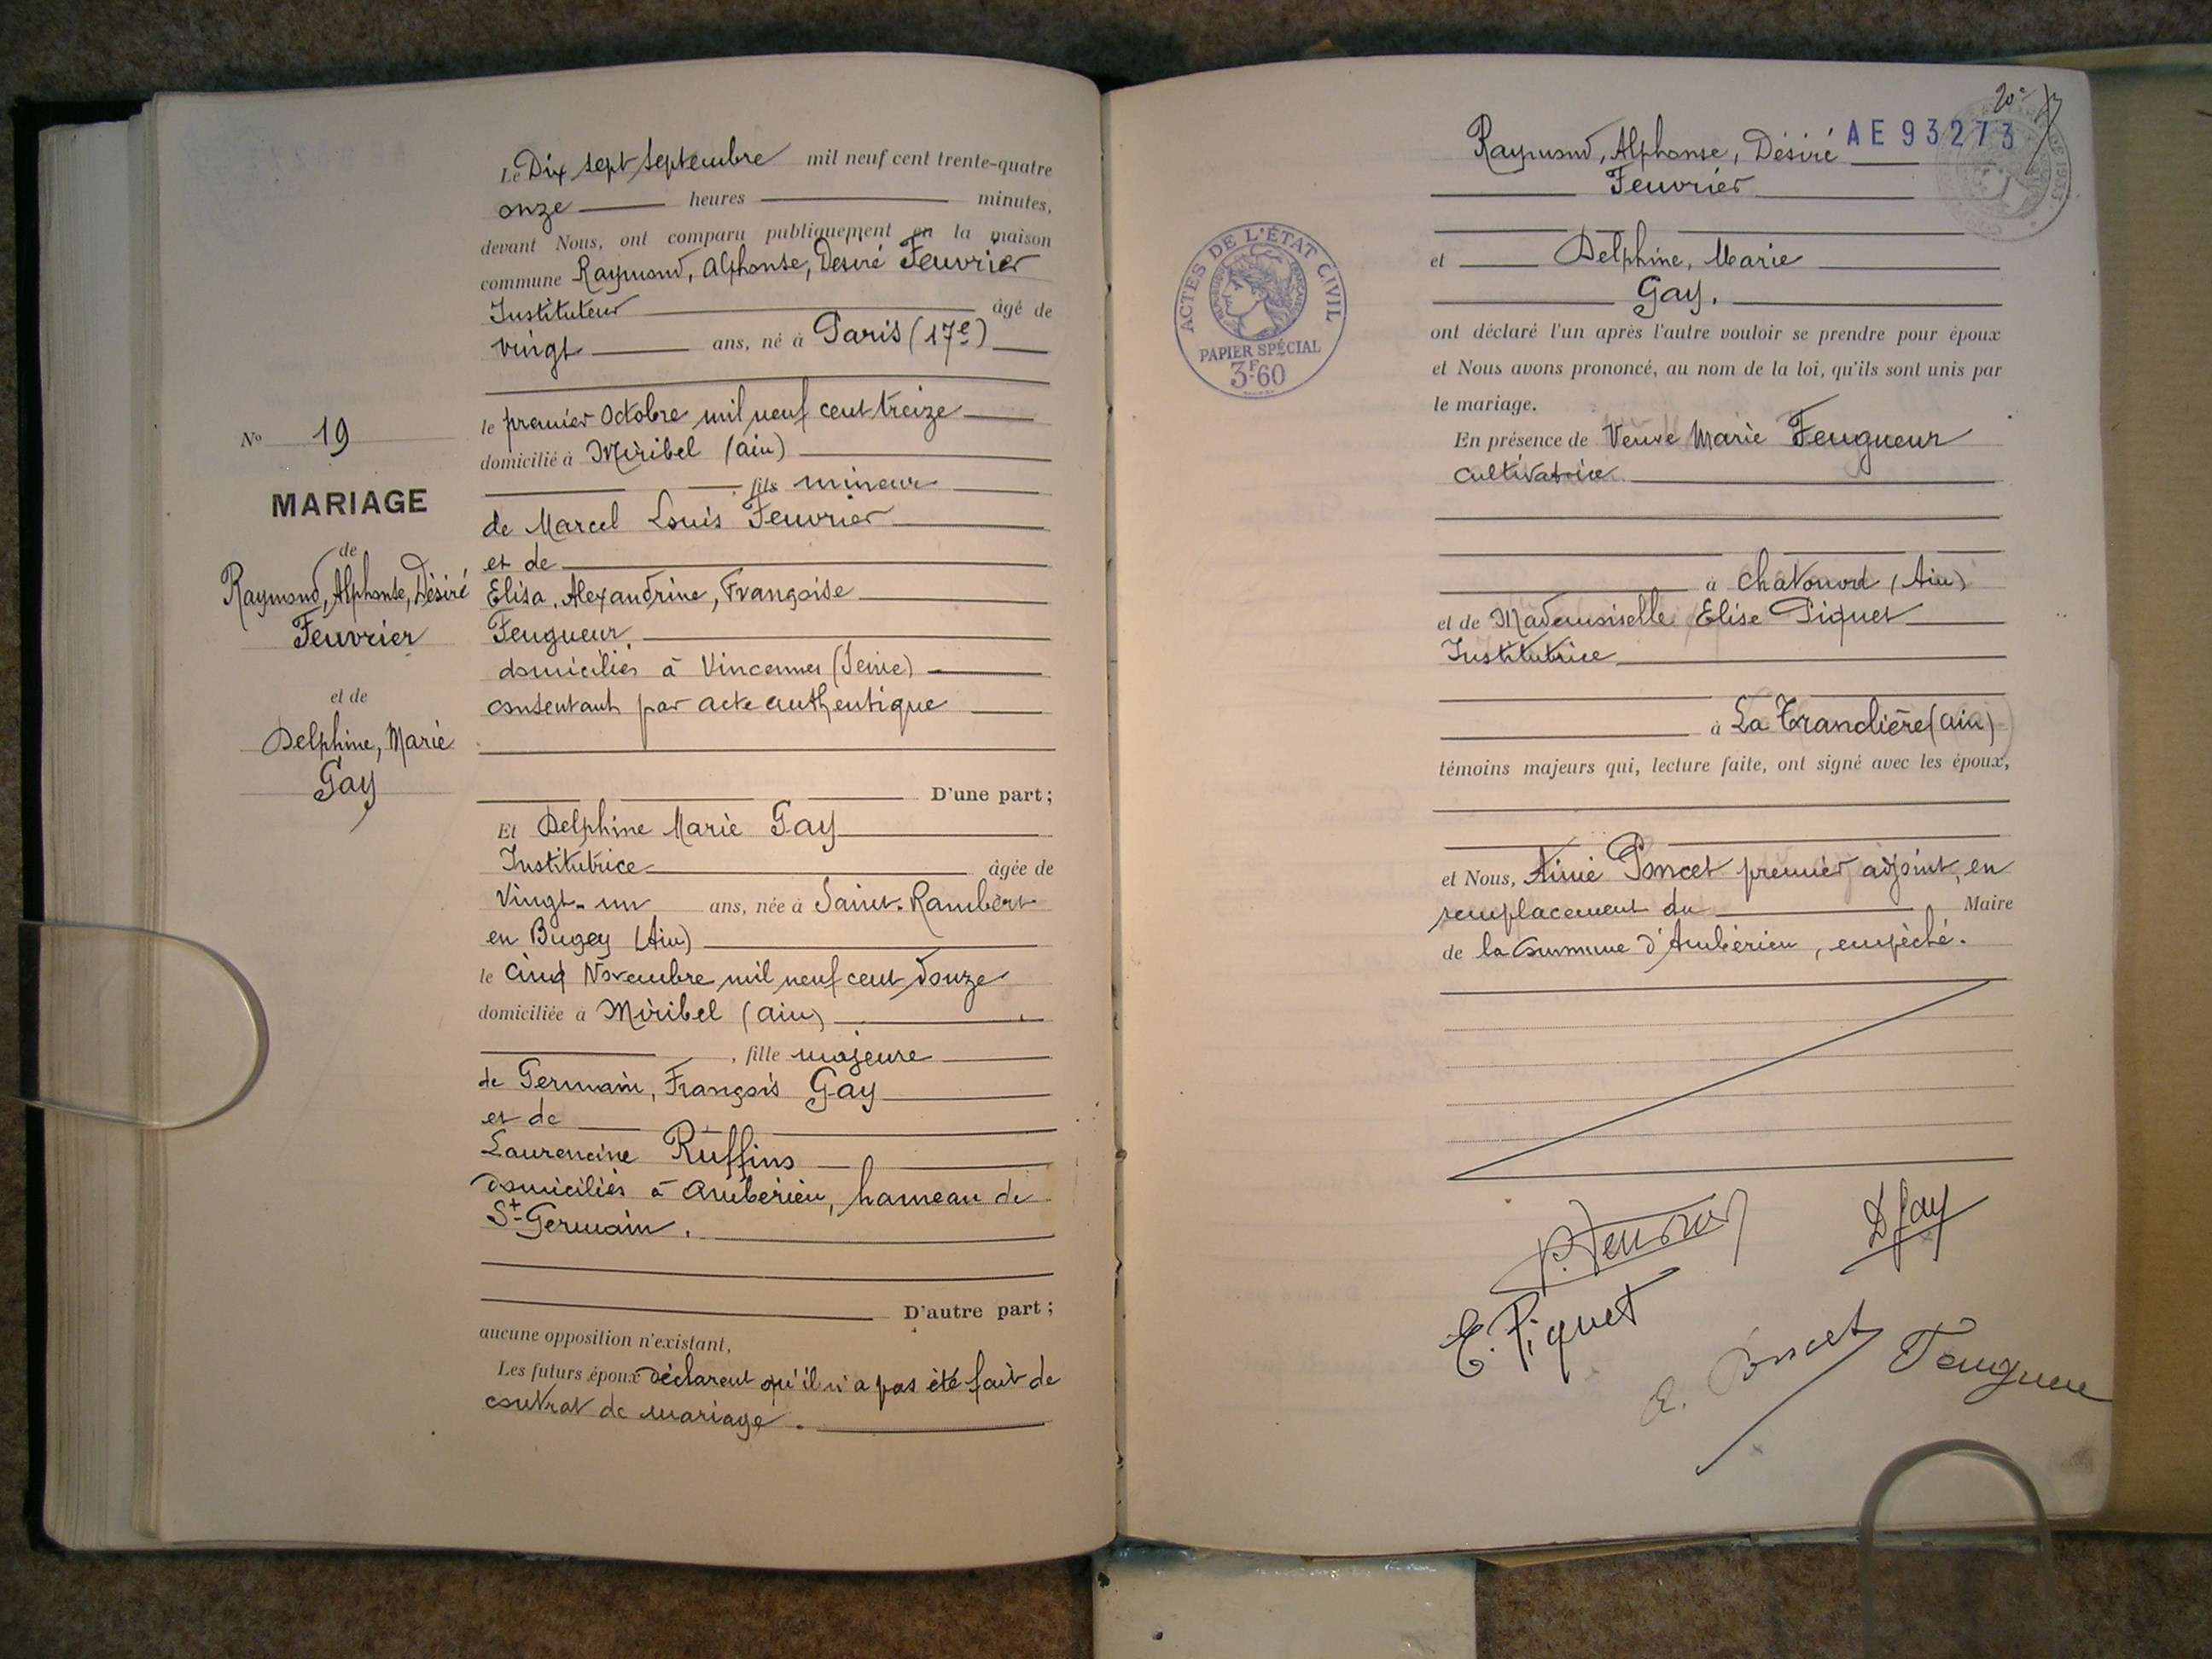 N° 19
MARIAGE
de
Raymond, Alphonse, Désiré
Feuvrier
et de
Delphine, Marie
Gay
Le Dix sept Septembre mil neuf cent trente-quatre
onze heures minutes,
devant Nous, ont comparu publiquement en la maison
commune Raymond, Alphonse, Désiré Feuvrier
Instituteur âgé de
vingt ans, né à Paris (17e)
le premier Octobre mil neuf cent treize
domicilié à Miribel (ain)
, fils mineur
de Marcel Louis Feuvrier
et de
Elisa, Alexandrine, Françoise
Feugueur
domiciliés à Vincennes (Seine)
consentant par acte authentique
D'une part ;
Et Delphine Marie Gay
Institutrice âgée de
Vingt-un ans, née à Saint-Rambert
en Bugey (Ain)
le Cinq Novembre mil neuf cent douze
domiciliée à Miribel (ain)
, fille majeure
de Germain, François Gay
et de
Laurencine Ruffins
domiciliés à Ambérieu, hameau de
St-Germain.
D'autre part ;
aucune opposition n'existant,
Les futurs époux déclarent qu'il n'a pas été fait de
contrat de mariage.
20e
AE 93273
Raymond, Alphonse, Désiré
Feuvrier
et Delphine, Marie
Gay.
ACTES DE L'ÉTAT CIVIL
PAPIER SPÉCIAL
3F60
ont déclaré l'un après l'autre vouloir se prendre pour époux
et Nous avons prononcé, au nom de la loi, qu'ils sont unis par
le mariage.
En présence de Veuve Marie Feugueur
Cultivatrice
à
et de Mademoiselle Elise Piquet
Institutrice
à La Tranclière (ain)
témoins majeurs qui, lecture faite, ont signé avec les époux,
et Nous, Aimé Poncet premier adjoint, en
remplacement du Maire
de la Commune d'Ambérieu, empêché.
D Gay
E. Piquet
Poncet